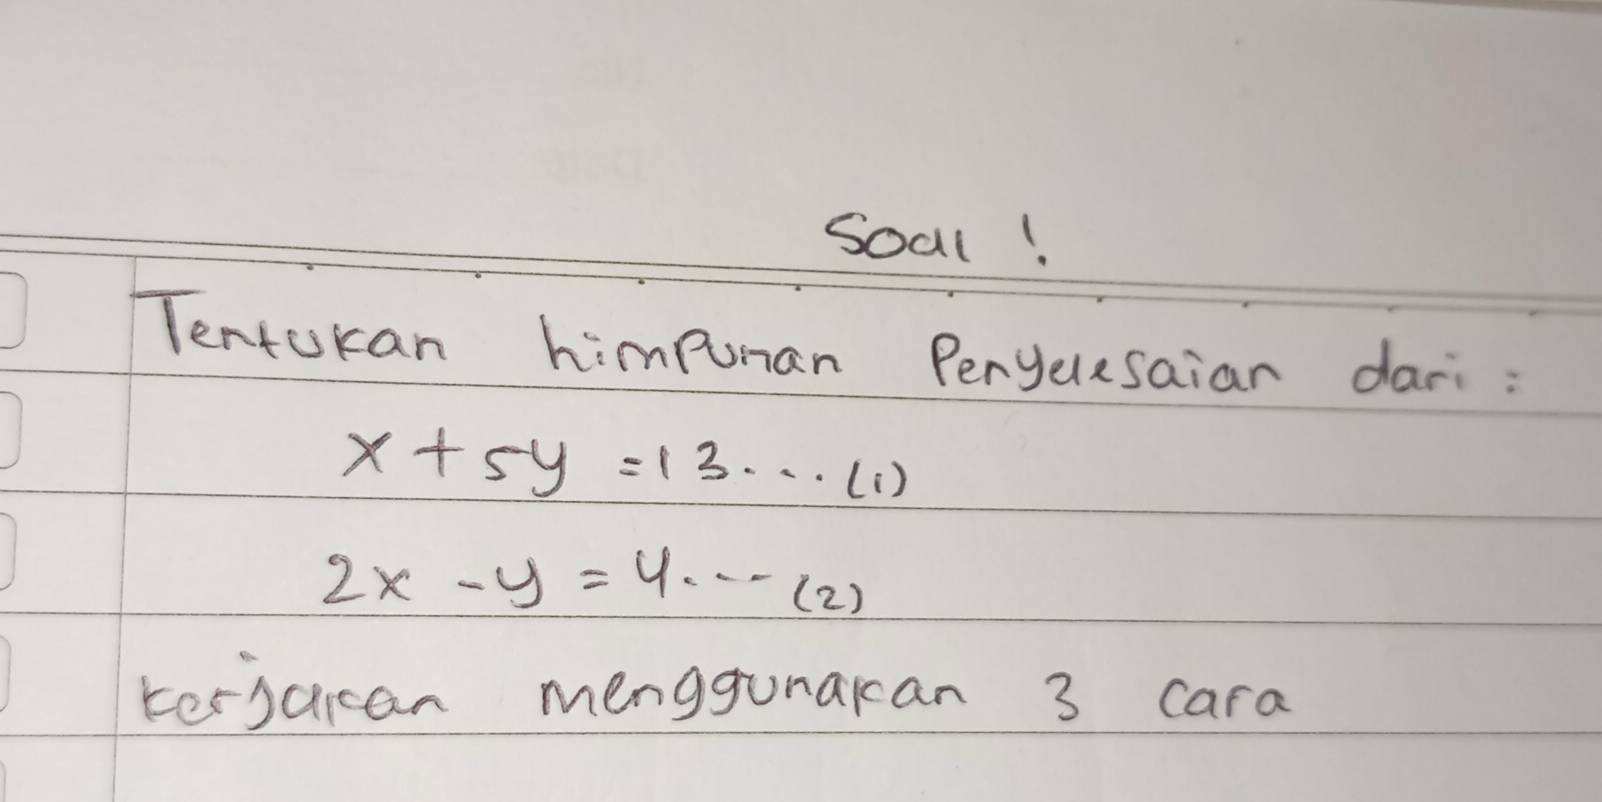 Soal !
Tentukan himpunan Penyelesaian dari :
x + 5y = 13 . . . . (1)
2x - y = 4 . . . . (2)
kerjakan menggunakan 3 cara